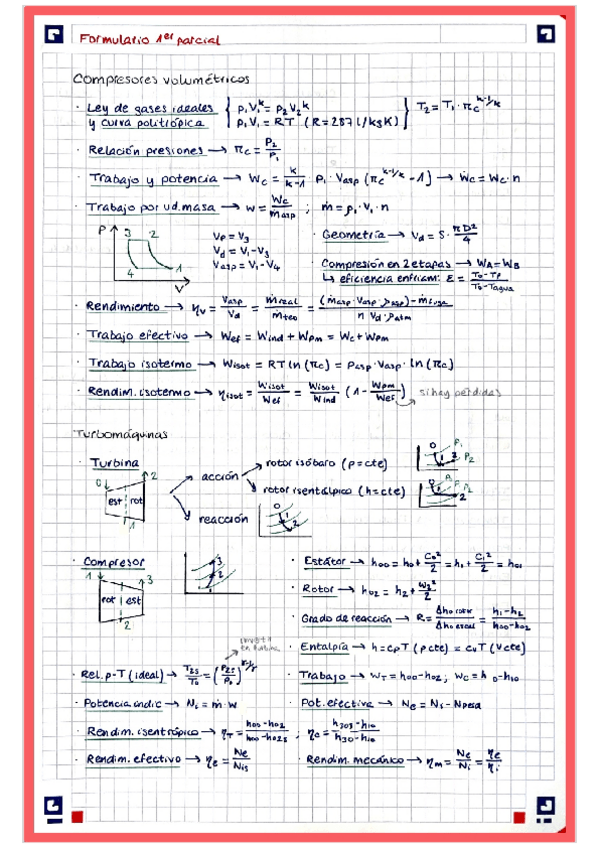 Formulario 1er parcial
Compresores volumétricos
· Ley de gases ideales y curva politrópica { p₁V₁ᵏ = p₂V₂ᵏ
p₁V₁ = RT (R = 287 J/kgK) } T₂ = T₁ · πc^(k-1/k)
· Relación presiones → πc = P₂/P₁
· Trabajo y potencia → Wc = k/(k-1) p₁ · Vasp (πc^(k-1/k) - 1) → Ẇc = Wc · n
· Trabajo por ud. masa → w = Wc/masp ; ṁ = ρ₁ · V₁ · n
P 3 2 4 1 V
Vp = V₃
Vd = V₁ - V₃
Vasp = V₁ - V₄
· Geometría → Vd = S · πD²/4
· Compresión en 2 etapas → WA = WB
↳ eficiencia enfriam: ε = (T₀ - TP)/(T₀ - Tagua)
· Rendimiento → ηv = Vasp/Vd = ṁreal/ṁteo = ((ṁasp · Vasp · ρasp) - ṁfuga)/(n Vd · ρatm)
· Trabajo efectivo → Wef = Wind + Wpm = Wc + Wpm
· Trabajo isotermo → Wisot = RT ln (πc) = Pasp · Vasp · ln (πc)
· Rendim. isotermo → ηisot = Wisot/Wef = Wisot/Wind (1 - Wpm/Wef) → si hay pérdidas
Turbomáquinas
· Turbina
0 2 est rot 1
acción → rotor isóbaro (p = cte)
→ rotor isentálpico (h = cte)
reacción
0 P₁ 1 2 P₂
· Compresor
1 3 rot est 2
3 2
· Estátor → h₀₀ = h₀ + C₀²/2 = h₁ + C₁²/2 = h₀₁
· Rotor → h₀₂ = h₂ + w₂²/2
· Grado de reacción → R = Δh rotor/Δh escal = (h₁ - h₂)/(h₀₀ - h₀₂)
· Entalpía → h = cpT (p cte) = cvT (v cte)
· Rel. p-T (ideal) → T₂s/T₀ = (P₂s/P₀)^(k-1/k)
· Trabajo → wT = h₀₀ - h₀₂ ; wc = h 0 - h₁₀
· Potencia indic → Ni = ṁ · w
· Pot. efectiva → Ne = Ni - Nperd
· Rendim. isentrópico → ηT = (h₀₀ - h₀₂)/(h₀₀ - h₀₂s) ; ηc = (h₃₀s - h₁₀)/(h₃₀ - h₁₀)
· Rendim. efectivo → ηe = Ne/Nis
· Rendim. mecánico → ηm = Ne/Ni = ηe/ηi